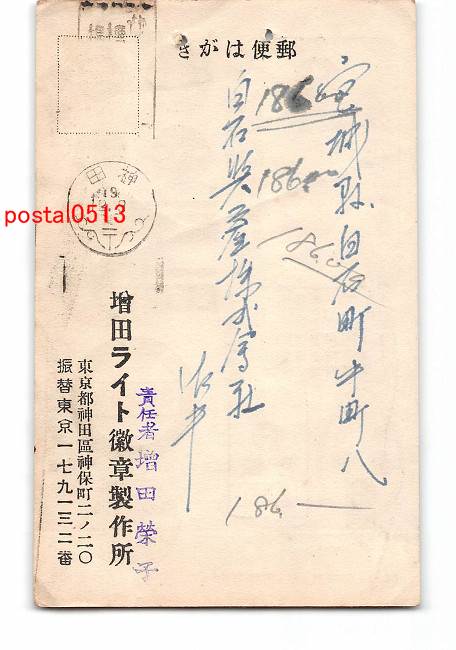 郵便はがき
宮城縣白石町中町八
186
白石奬產株式會社
186
186
御中
186
神田
19
増田ライト徽章製作所
責任者 増田榮子
東京都神田區神保町二ノ二〇
振替東京一七九一三二番
postal0513